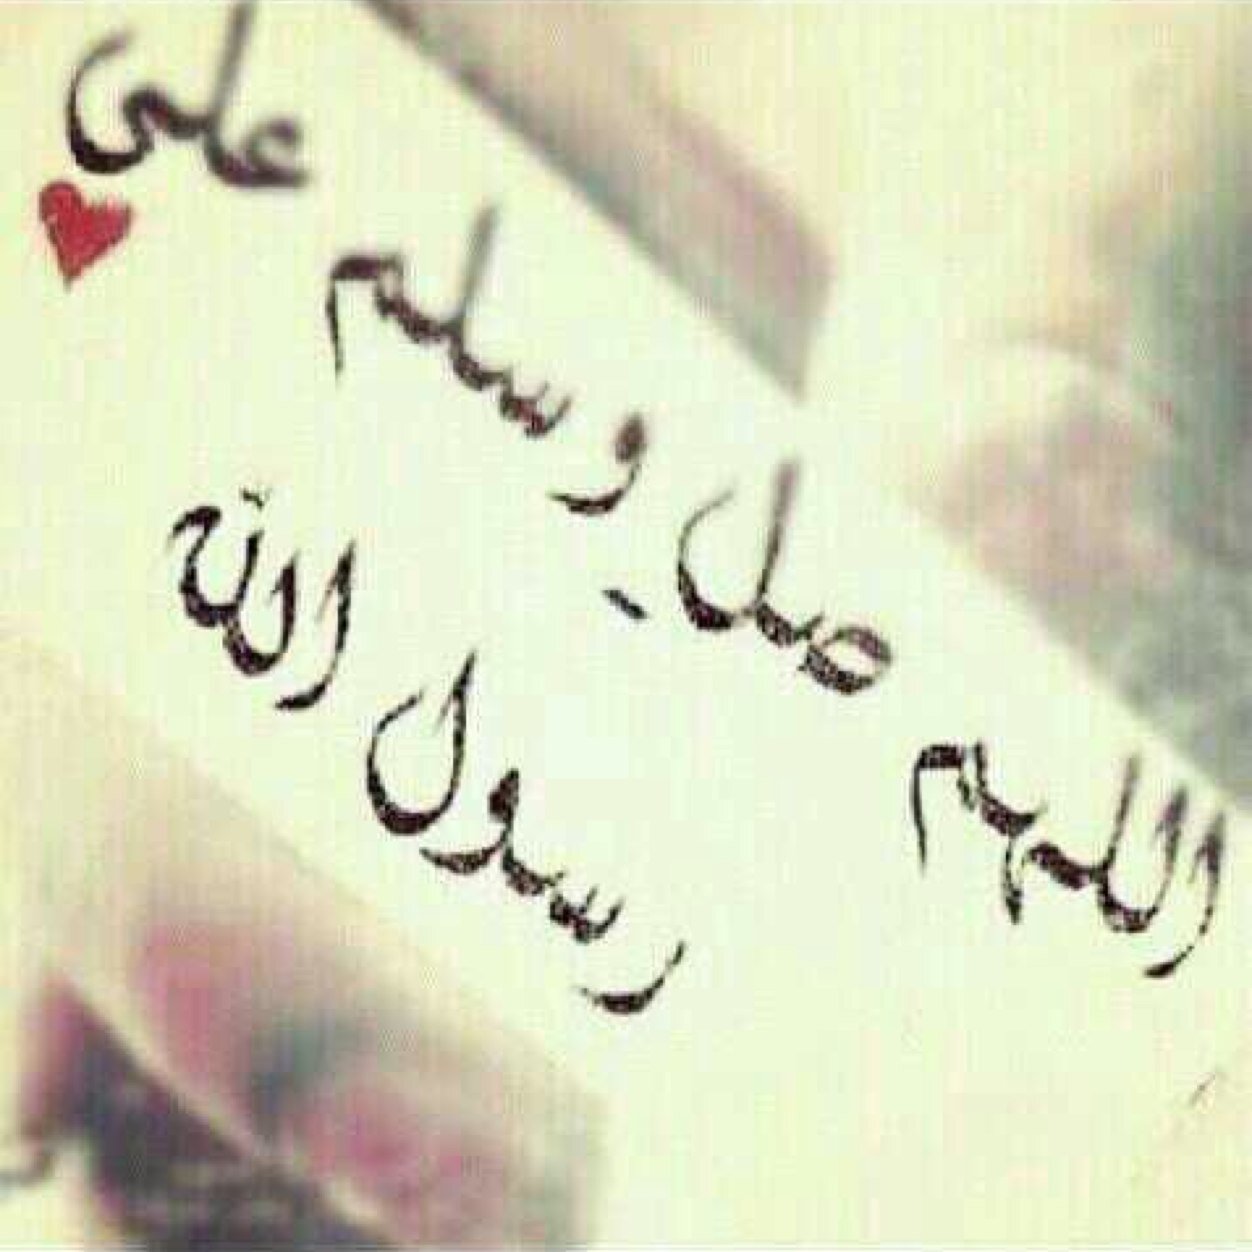 اللهم صل وسلم على
رسول الله